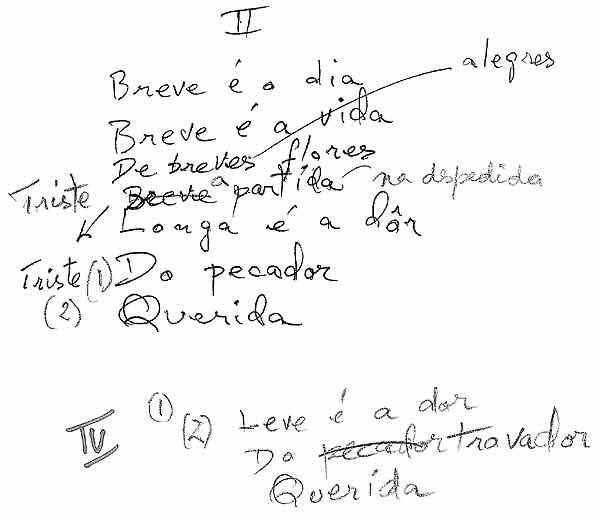 II
alegres
Breve é o dia
Breve é a vida
De breves flores
Triste Breve a partida na dspedida
Longa é a dôr
Triste (1) Do pecador
(2) Querida
IV (1) (2) Leve é a dor
Do pecador travador
Querida